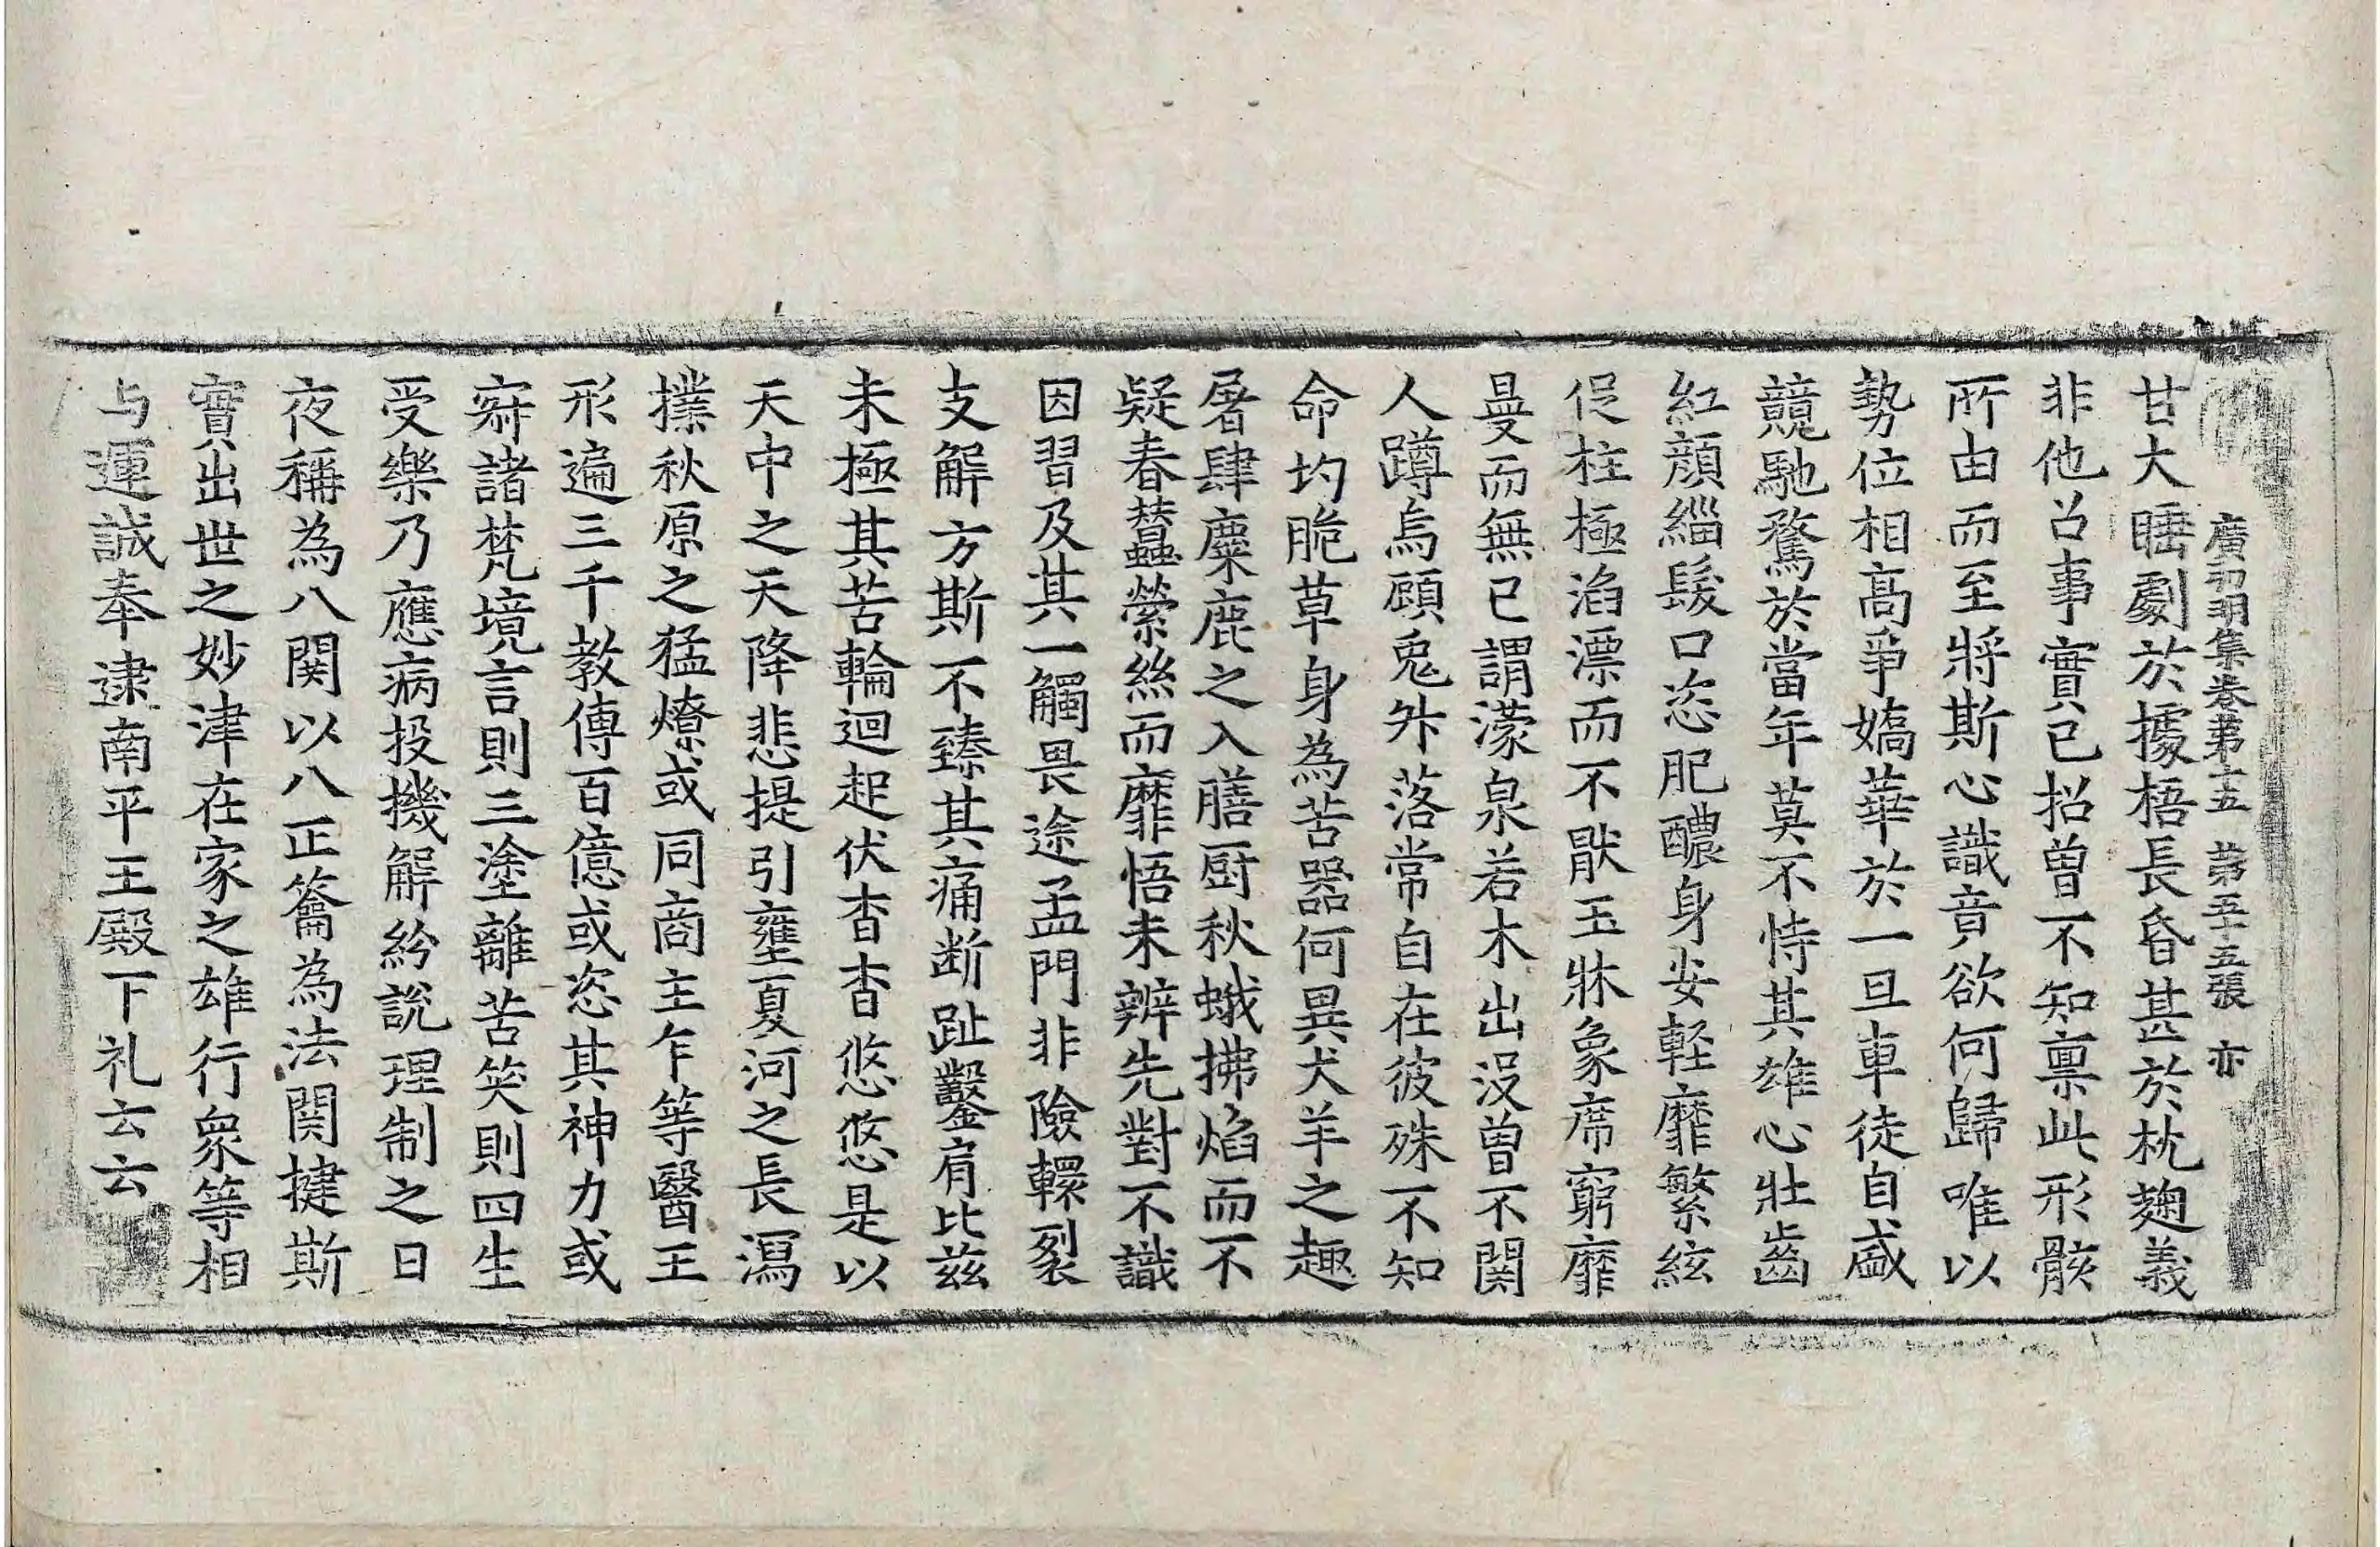 廣弘明集卷第十五 第五十五張 亦
甘大睡劇於據梧長昏甚於枕麴義
非他召事實已招曾不知禀此形骸
所由而至將斯心識竟欲何歸唯以
勢位相高爭嬌華於一旦車徒自盛
競馳騖於當年莫不恃其雄心壯齒
紅顏緇髮口恣肥醲身安輕靡繁絃
促柱極滔漂而不猒玉牀象席窮靡
曼而無已謂濛泉若木出沒曾不関
人蹲烏顧兔外落常自在彼殊不知
命均脆草身為苦器何異犬羊之趣
屠肆麋鹿之入膳厨秋蛾拂焰而不
疑春蠶縈絲而靡悟未辨先對不識
因習及其一觸畏途孟門非險轘裂
支解方斯不臻其痛断趾鑿肩比兹
未極其苦輪迴起伏杳杳悠悠是以
天中之天降悲提引壅夏河之長瀉
撲秋原之猛燎或同商主乍等醫王
形遍三千教傳百億或恣其神力或
寄諸梵境言則三塗離苦笑則四生
受樂乃應病投機解紛說理制之日
夜稱為八関以八正籥為法関揵斯
實出世之妙津在家之雄行衆等相
与運誠奉逮南平王殿下礼云云